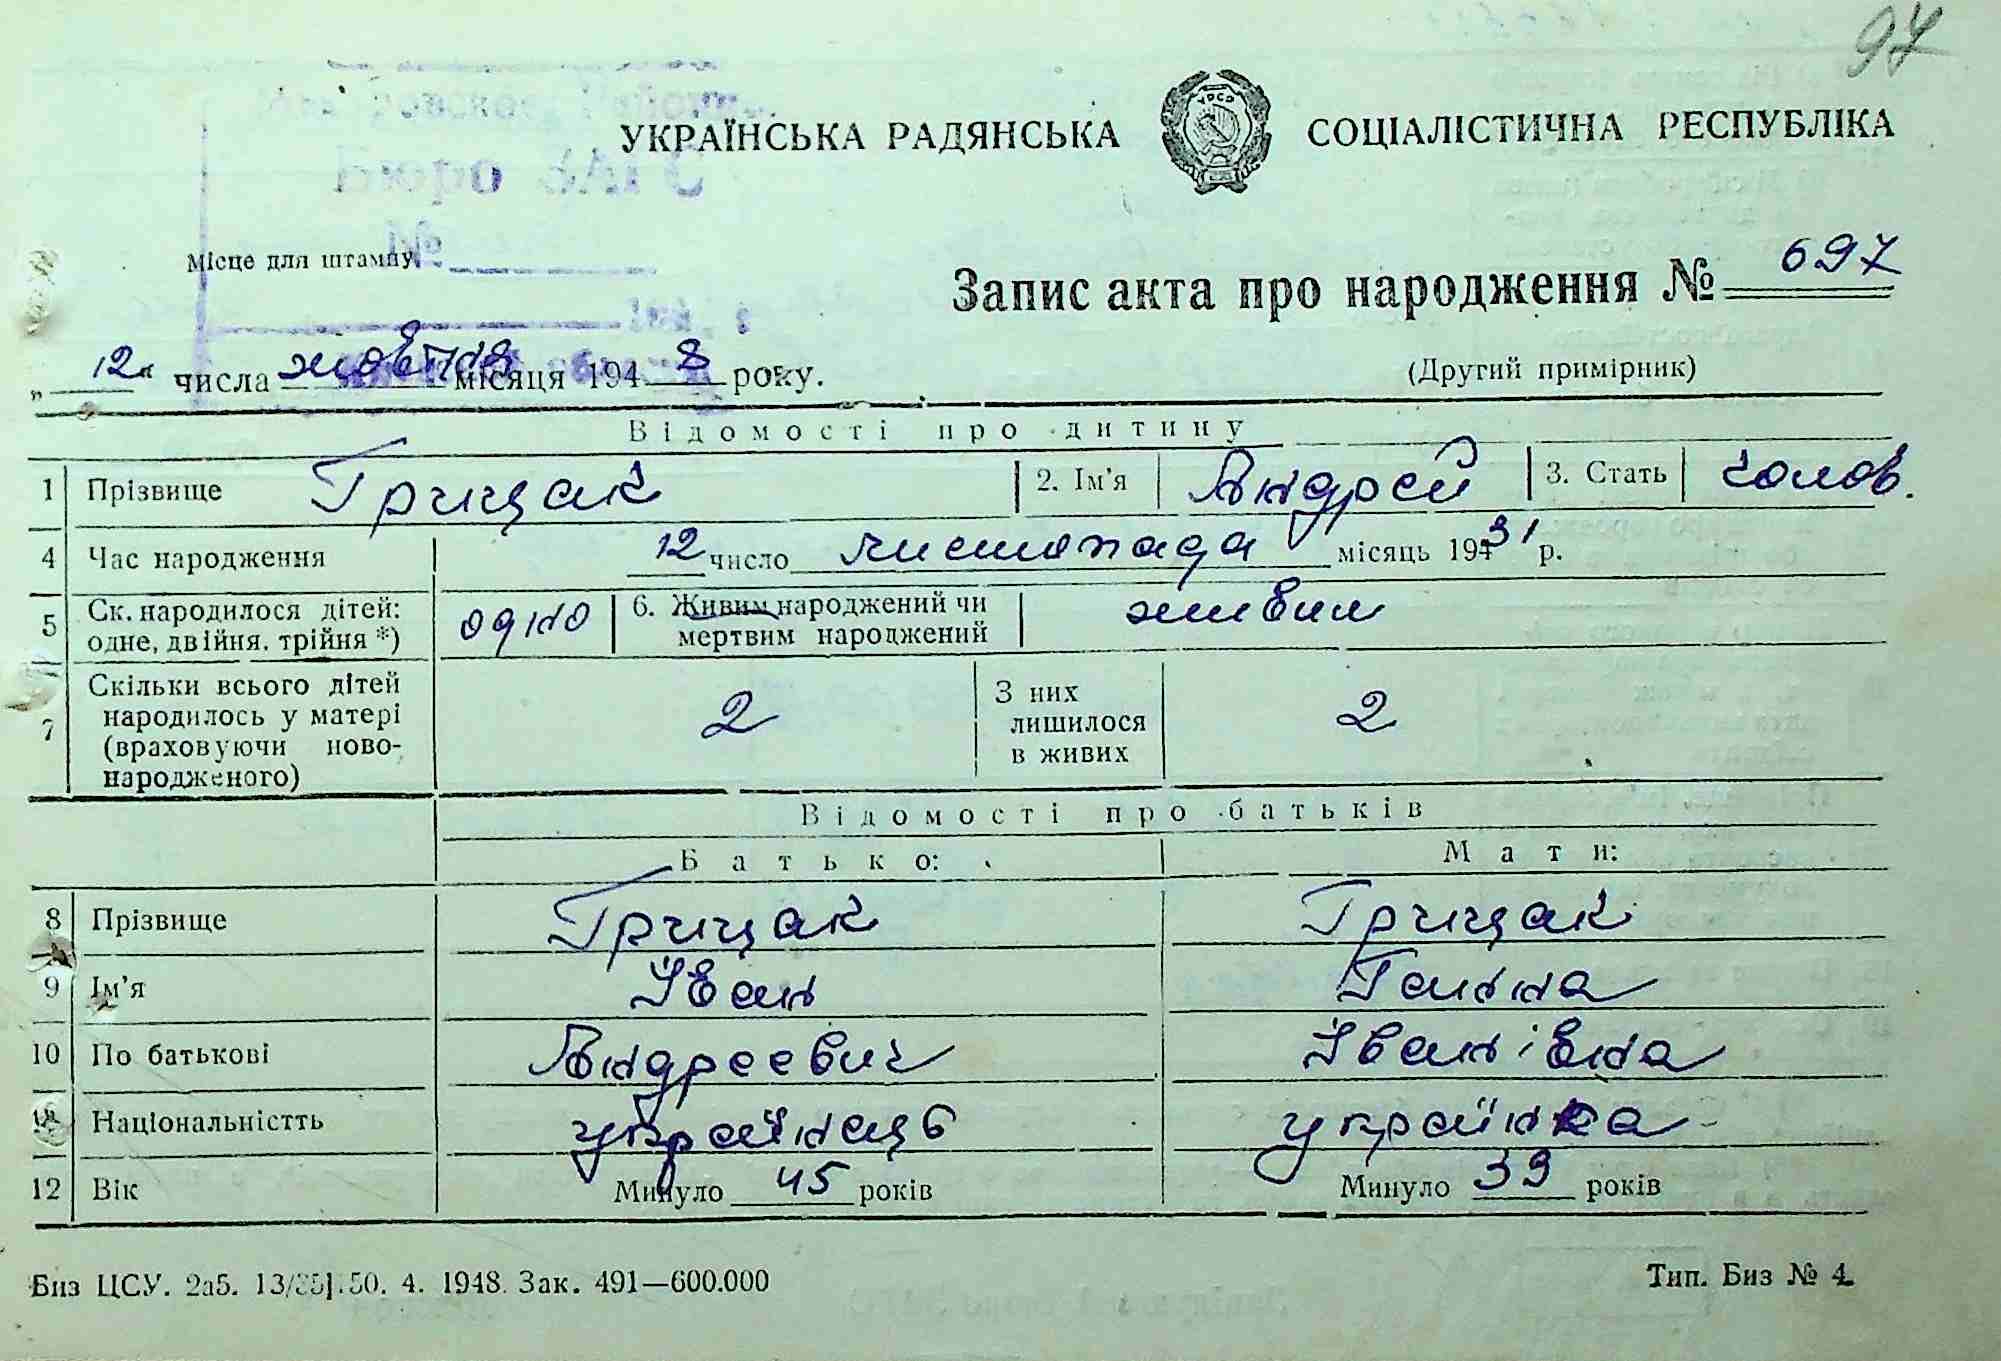 97
УКРАЇНСЬКА РАДЯНСЬКА СОЦІАЛІСТИЧНА РЕСПУБЛІКА
УРСР
Місце для штампу
Запис акта про народження № 697
„12“ числа жовтня місяця 1948 року.
(Другий примірник)
Відомості про дитину
1 Прізвище Грицак 2. Ім’я Андрей 3. Стать чолов.
4 Час народження 12 число листопада місяць 1931 р.
5 Ск. народилося дітей: одно 6. Живим народжений чи живим
одне, двійня, трійня *) мертвим народжений
7 Скільки всього дітей 2 З них 2
народилось у матері лишилося
(враховуючи ново- в живих
народженого)
Відомості про батьків
Батько: Мати:
8 Прізвище Грицак Грицак
9 Ім’я Іван Ганна
10 По батькові Андреевич Іванівна
11 Національністть українець українка
12 Вік Минуло 45 років Минуло 39 років
Биз ЦСУ. 2а5. 50. 4. 1948. Зак. 491—600.000 Тип. Биз № 4.